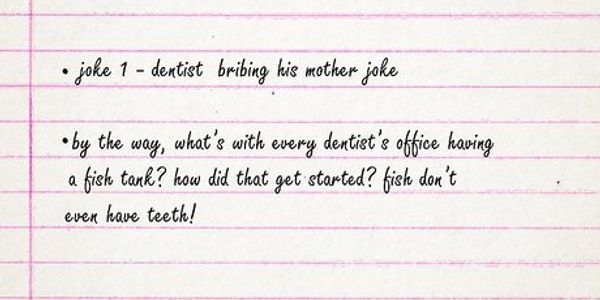 • joke 1 - dentist bribing his mother joke
• by the way, what's with every dentist's office having
a fish tank? how did that get started? fish don't
even have teeth!